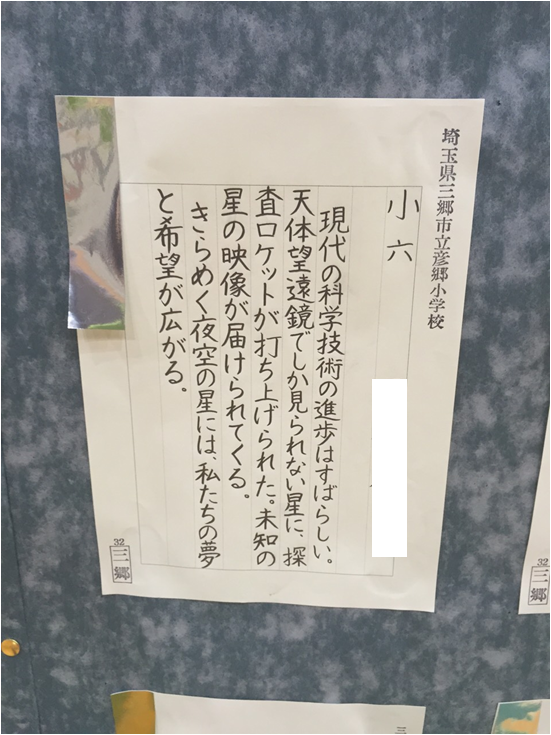 埼玉県三郷市立彦郷小学校
小六
現代の科学技術の進歩はすばらしい。
天体望遠鏡でしか見られない星に、探
査ロケットが打ち上げられた。未知の
星の映像が届けられてくる。
きらめく夜空の星には、私たちの夢
と希望が広がる。
32
三郷
32
三郷
三